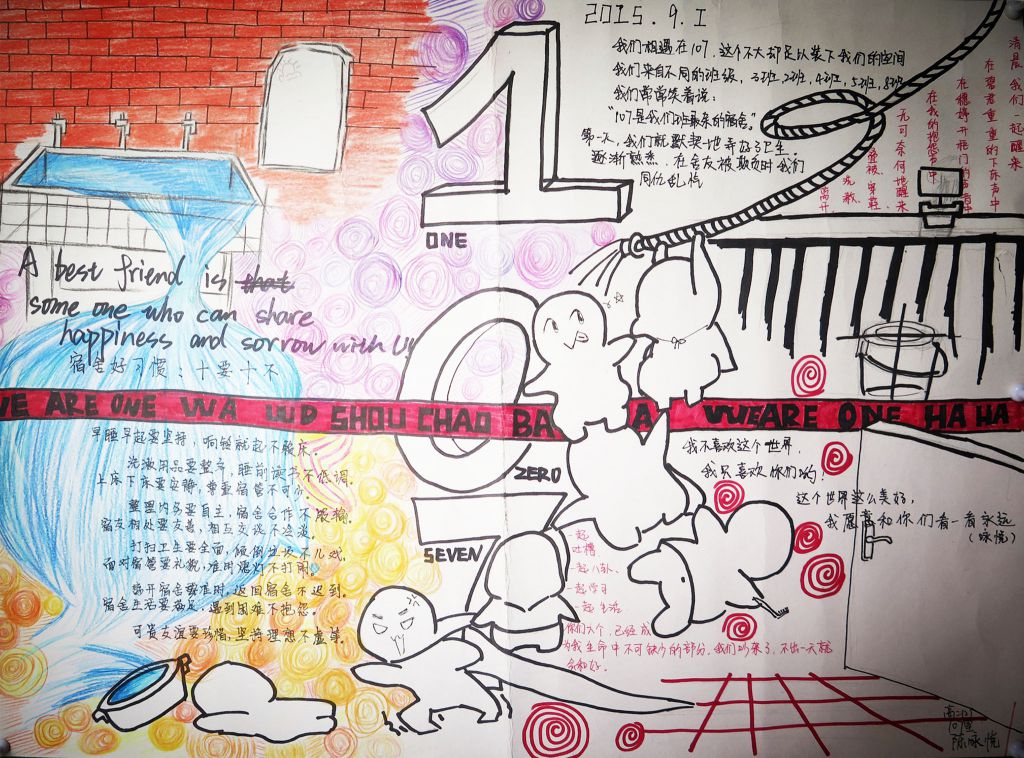 2015.9.1
我们相遇在107,这个不大却足以装下我们的空间
我们来自不同的班级,3班,2班,4班,5班,8班
我们常常笑着说:
"107是我们班最亲的宿舍。"
第一天,我们就默契地弄好了卫生。
逐渐熟悉,在舍友被
清晨我们一起醒来
在碧君重重的下床声中
在穗婷开柜门的声音中
在我的
无可奈何地醒来
叠被、穿鞋
洗漱
离开
1
ONE
0
ZERO
7
SEVEN
A best friend is that
some one who can share
happiness and sorrow with U
宿舍好习惯:十要十不
WE ARE ONE WA WUD SHOU CHAO BA A WEARE ONE HA HA
早睡早起要坚持,响铃就起不赖床。
洗漱用品要整齐,睡前读书不低调。
上床下床要安静,尊重宿管不可少。
整理内务要自主,宿舍合作不
宿友相处要友善,相互交谈不冷淡。
打扫卫生要全面,倾倒垃圾不儿戏。
面对宿管要礼貌,准时熄灯不打闹。
离开宿舍要准时,返回宿舍不迟到。
宿舍生活要满足,遇到困难不抱怨。
可贵友谊要珍惜,坚持理想不虚掷。
我不喜欢这个世界,
我只喜欢你们哟!
这个世界这么美好,
我愿意和你们看一看永远
(咏悦)
一起
吐槽
一起八卦、
一起学习
一起生活
你们六个,已经成
为我生命中不可缺少的部分,我们吵架了,不出一天就
会和好。
107室
陈咏悦